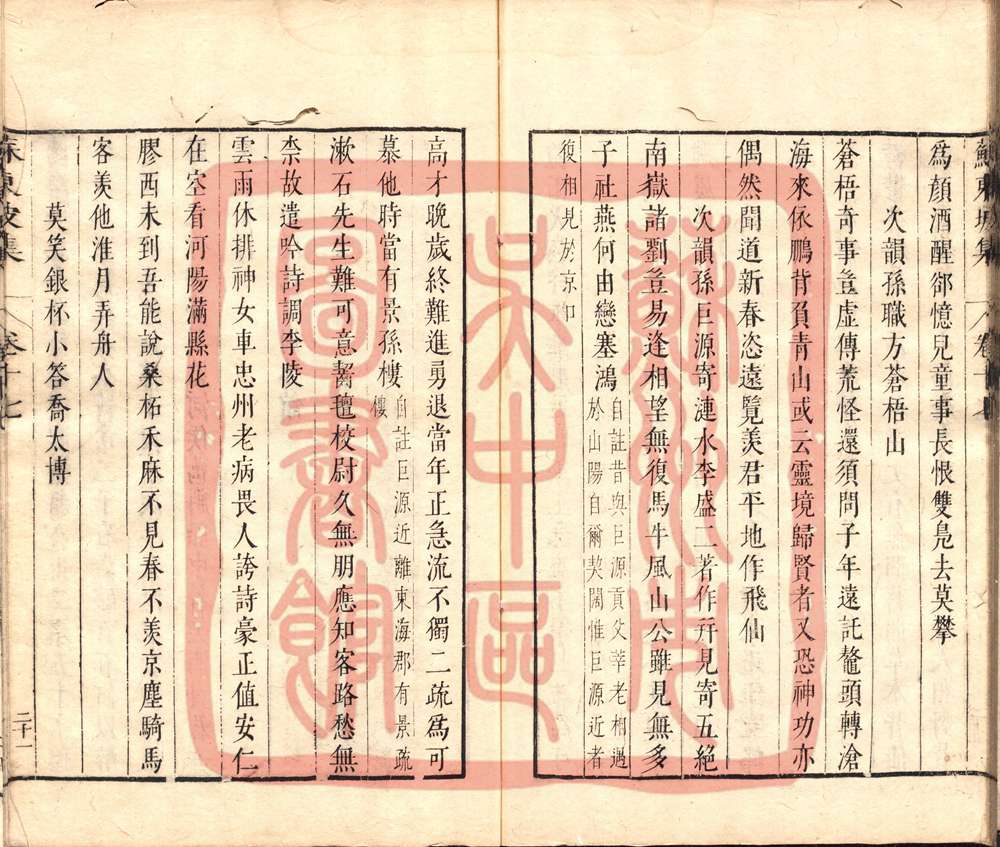 蘇東坡集 卷十七
為顏酒醒卻憶兒童事長恨雙鳧去莫攀
次韻孫職方蒼梧山
蒼梧奇事豈虛傳荒怪還須問子年遠託鼇頭轉滄
海來依鵬背負青山或云靈境歸賢者又恐神功亦
偶然聞道新春恣遠覽羨君平地作飛仙
次韻孫巨源寄漣水李盛二著作幷見寄五絕
南嶽諸劉豈易逢相望無復馬牛風山公雖見無多
子社燕何由戀塞鴻
自註昔與巨源貢父莘老相遇
於山陽自爾契闊惟巨源近者
復相見於京口
高才晚歲終難進勇退當年正急流不獨二疏為可
慕他時當有景孫樓
自註巨源近離東海郡有景疏
樓
漱石先生難可意齧氊校尉久無朋應知客路愁無
柰故遣吟詩調李陵
雲雨休排神女車忠州老病畏人誇詩豪正值安仁
在空看河陽滿縣花
膠西未到吾能說桑柘禾麻不見春不羨京塵騎馬
客羨他淮月弄舟人
莫笑銀杯小答喬太博
蘇東坡集 卷十七
二十一
蘇州市
吳中區
圖書館